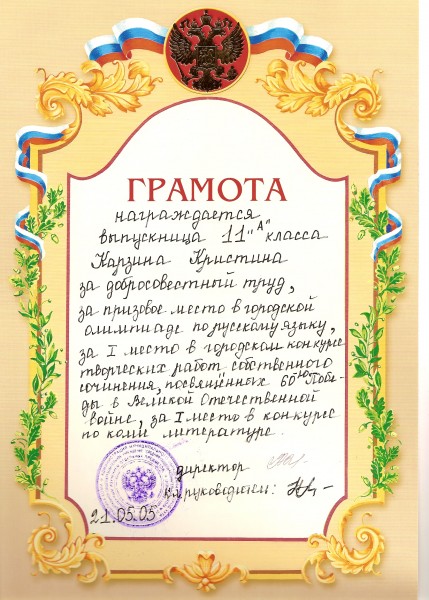 ГРАМОТА
награждается
выпускница 11 "А" класса
Карзина Кристина
за добросовестный труд,
за призовое место в городской
олимпиаде по русскому языку,
за I место в городском конкурсе
творческих работ собственного
сочинения, посвящённых 60-ю Побе-
ды в Великой Отечественной
войне, за I место в конкурсе
по коми литературе.
директор
кл. руководитель:
21.05.05